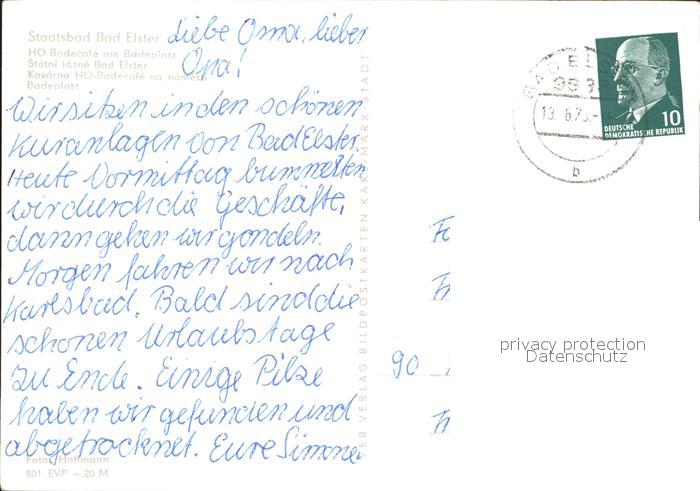 Staatsbad Bad Elster
HO-Badecafé am Badeplatz
Státní lázně Bad Elster
Kavárna HO-Badecafé na náměstí
Badeplatz
Liebe Oma, lieber
Opa!
Wir sitzen in den schönen
Kuranlagen von Bad Elster.
Heute Vormittag bummelten
wir durch die Geschäfte,
dann gehen wir gondeln.
Morgen fahren wir nach
Karlsbad. Bald sind die
schönen Urlaubstage
zu Ende. Einige Pilze
haben wir gefunden und
abgetrocknet. Eure Simone
Foto: Hoffmann
601 EVP -,20 M
VEB VERLAG BILDPOSTKARTEN KARL-MARX-STADT
BAD ELSTER
b
10
DEUTSCHE
DEMOKRATISCHE REPUBLIK
Fr
90
privacy protection
Datenschutz